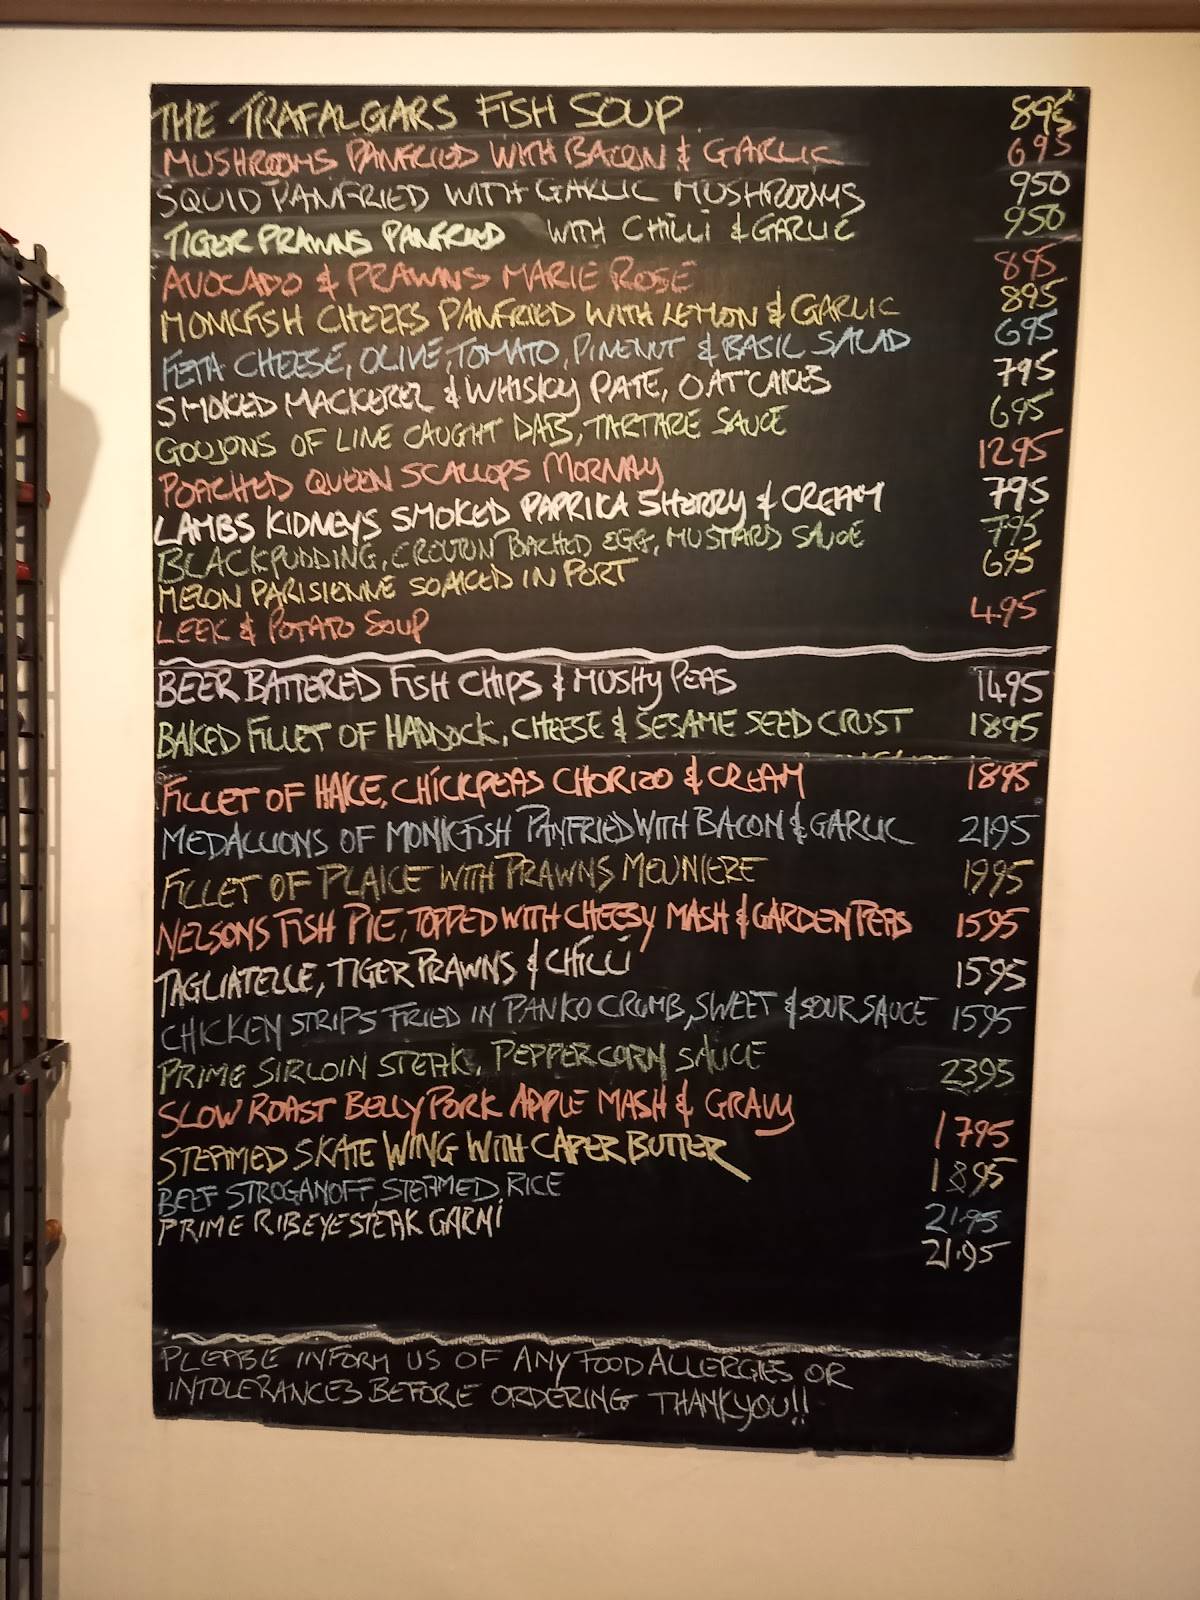 THE TRAFALGARS FISH SOUP 895
MUSHROOMS PANFRIED WITH BACON & GARLIC 695
SQUID PANFRIED WITH GARLIC MUSHROOMS 950
TIGER PRAWNS PANFRIED WITH CHILLI & GARLIC 950
AVOCADO & PRAWNS MARIE ROSE 895
MONKFISH CHEEKS PANFRIED WITH LEMON & GARLIC 895
FETA CHEESE, OLIVE, TOMATO, PINENUT & BASIL SALAD 695
SMOKED MACKEREL & WHISKY PATE, OATCAKES 795
GOUJONS OF LINE CAUGHT DAB, TARTARE SAUCE 695
POACHED QUEEN SCALLOPS MORNAY 1295
LAMBS KIDNEYS SMOKED PAPRIKA SHERRY & CREAM 795
BLACKPUDDING, CROUTON POACHED EGG, MUSTARD SAUCE 795
MELON PARISIENNE SOAKED IN PORT 695
LEEK & POTATO SOUP 4.95
BEER BATTERED FISH CHIPS & MUSHY PEAS 1495
BAKED FILLET OF HADDOCK, CHEESE & SESAME SEED CRUST 1895
FILLET OF HAKE, CHICKPEAS CHORIZO & CREAM 1895
MEDALLIONS OF MONKFISH PANFRIED WITH BACON & GARLIC 2195
FILLET OF PLAICE WITH PRAWNS MEUNIERE 1995
NELSONS FISH PIE, TOPPED WITH CHEESY MASH & GARDEN PEAS 1595
TAGLIATELLE, TIGER PRAWNS & CHILLI 1595
CHICKEN STRIPS FRIED IN PANKO CRUMB, SWEET & SOUR SAUCE 1595
PRIME SIRLOIN STEAK, PEPPERCORN SAUCE 2395
SLOW ROAST BELLY PORK APPLE MASH & GRAVY 1795
STEAMED SKATE WING WITH CAPER BUTTER 1895
BEEF STROGANOFF, STEAMED RICE 21.95
PRIME RIBEYE STEAK GARNI 21.95
PLEASE INFORM US OF ANY FOOD ALLERGIES OR
INTOLERANCES BEFORE ORDERING THANKYOU!!